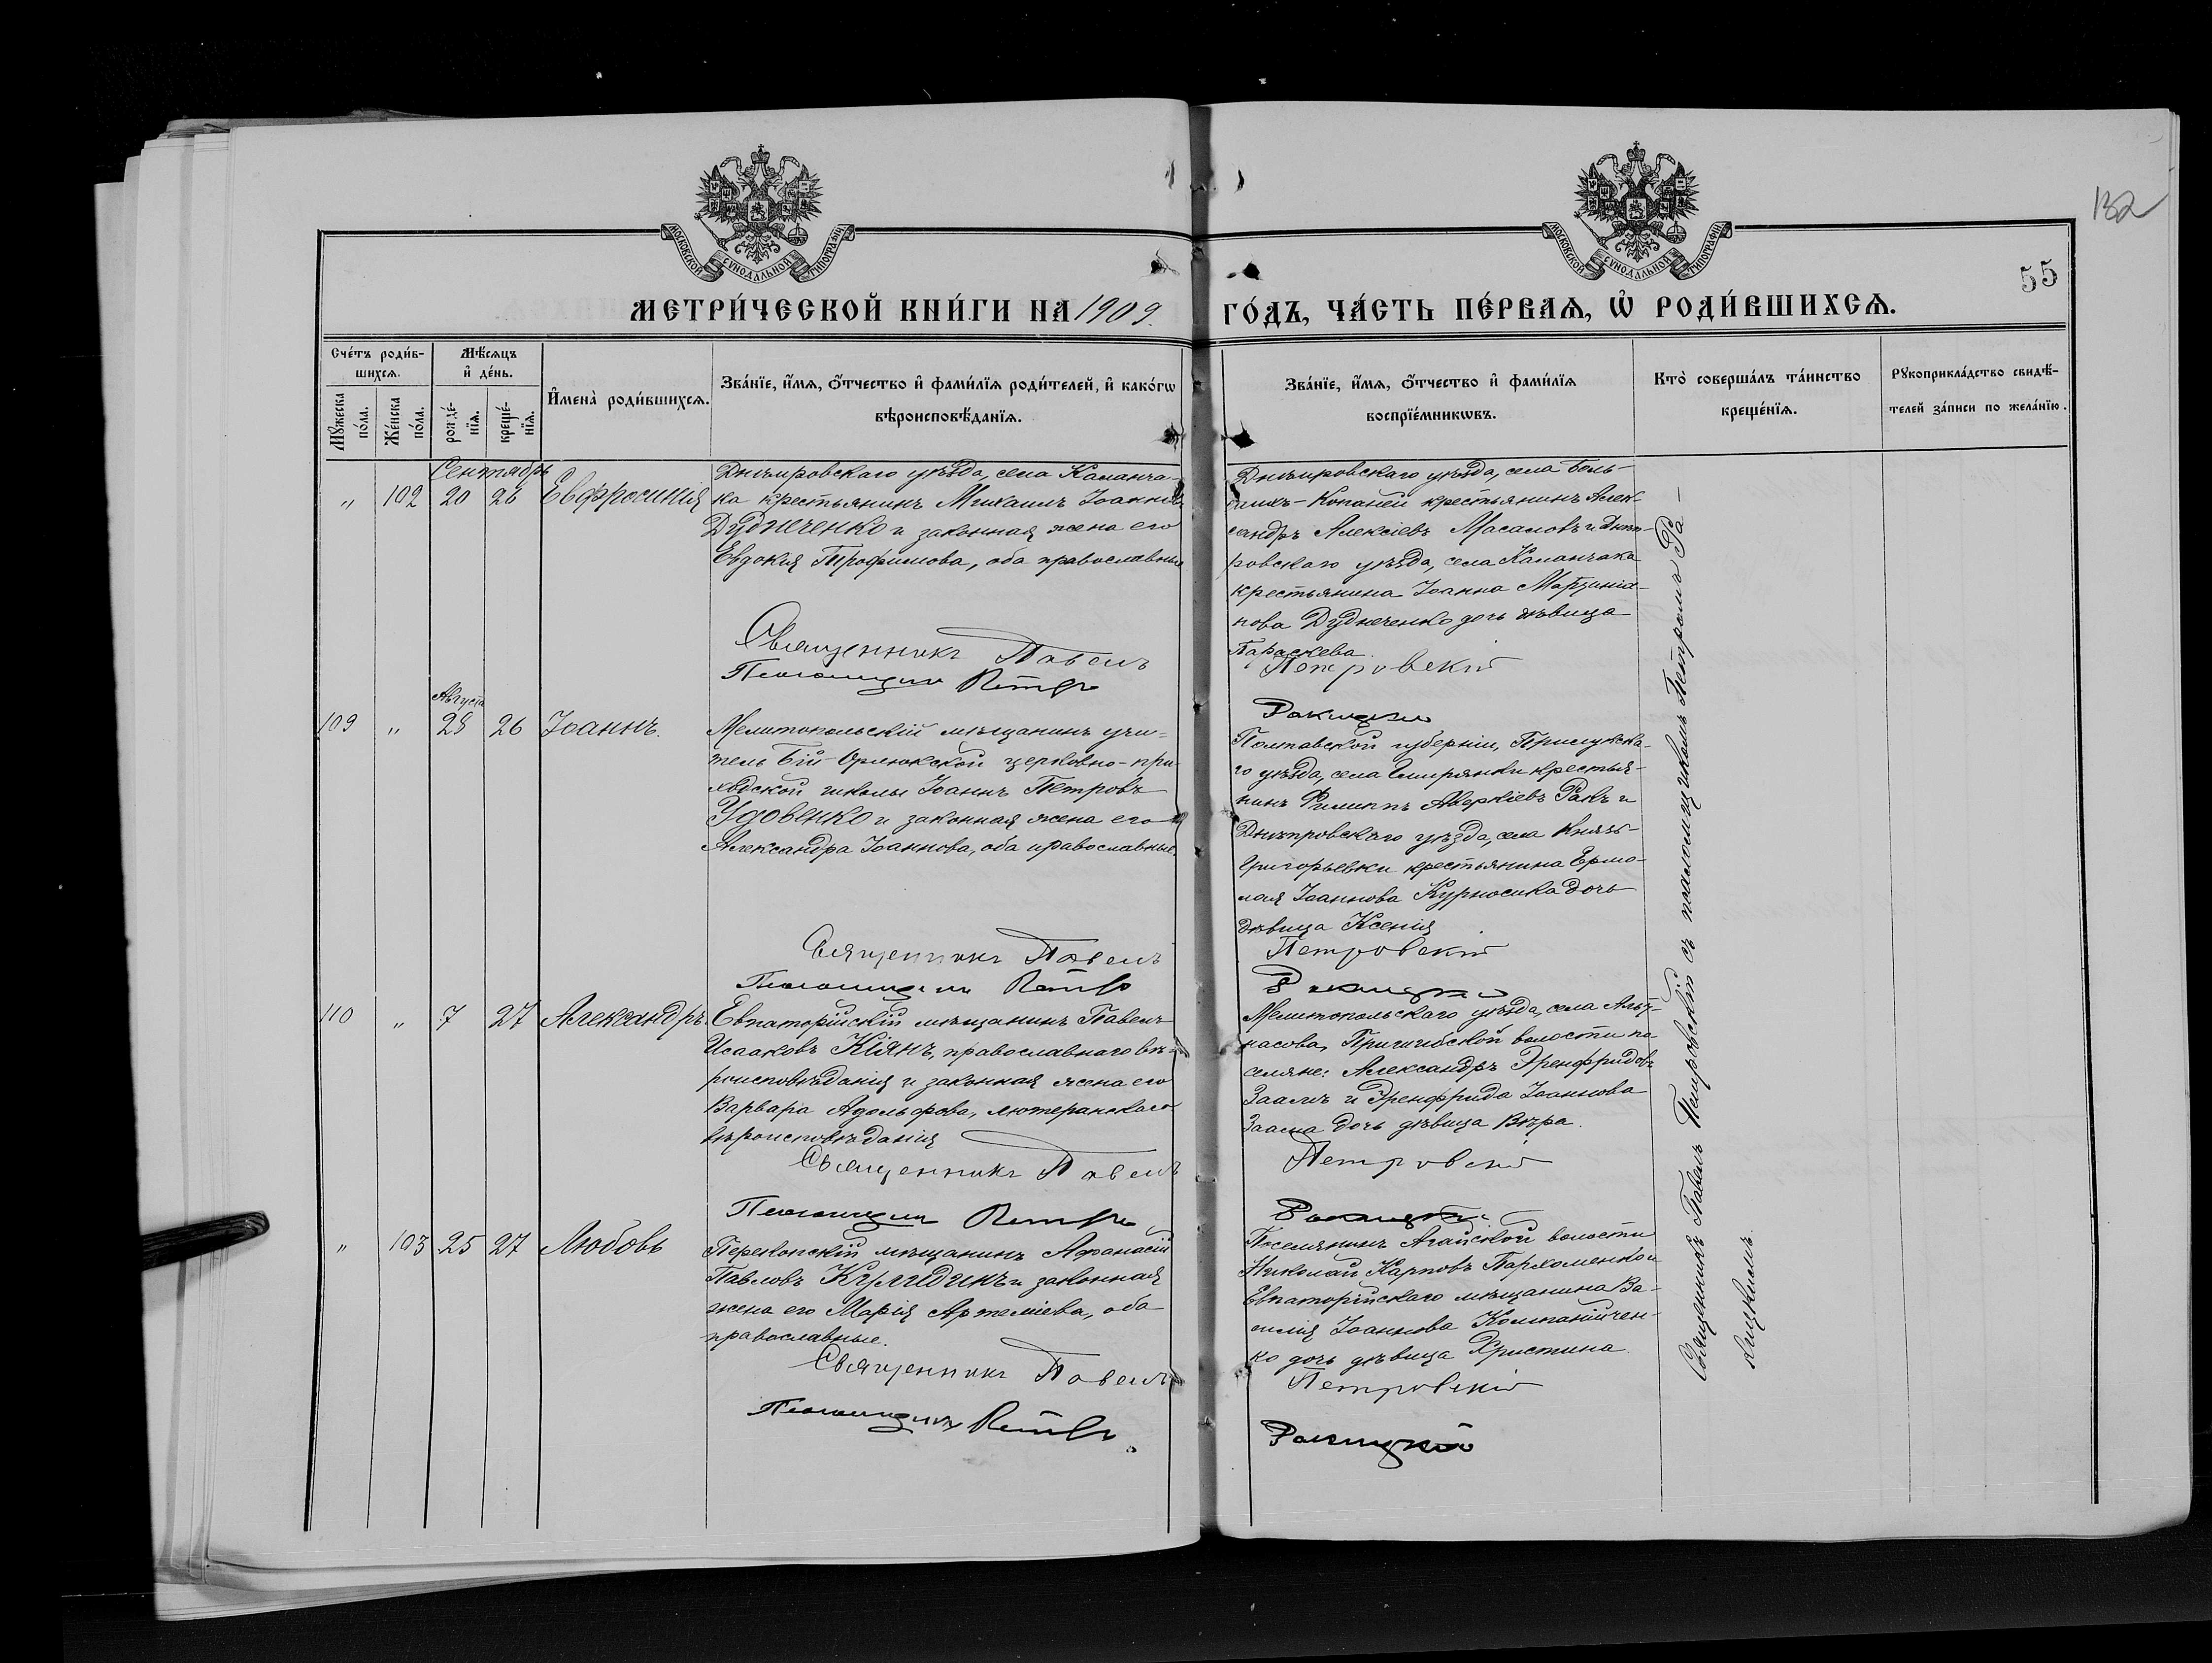 132
55
МОСКОВСКОЙ СУНОДАЛЬНОЙ ТИПОГРАФІИ
МОСКОВСКОЙ СУНОДАЛЬНОЙ ТИПОГРАФІИ
МЕТРИ́ЧЕСКОЙ КНИ́ГИ НА 1909.
ГО́ДЪ, ЧА́СТЬ ПЕ́РВАѦ, Ѡ҆ РОДИ́ВШИХСѦ.
Сче́тъ роди́в-
шихсѧ.
Мꙋ́жеска по́ла.
Же́нска по́ла.
Мѣ́сѧцъ
и҆ де́нь.
рожде́-
нїѧ.
креще́-
нїѧ.
И҆мена̀ роди́вшихсѧ.
Зва́нїе, и҆́мѧ, ѻ҆́тчество и҆ фами́лїѧ роди́телей, и҆ како́гѡ
вѣроисповѣ́данїѧ.
Зва́нїе, и҆́мѧ, ѻ҆́тчество и҆ фами́лїѧ
воспрїе́мникѡвъ.
Кто̀ соверша́лъ та́инство
креще́нїѧ.
Рꙋкоприкла́дство свидѣ́-
телей за́писи по жела́нїю.
Сентябрь
„ 102 20 26 Евфросинія
Днѣпровскаго уѣзда, села Каланча-
ка крестьянинъ Михаилъ Іоанновъ
Дудниченко и законная жена его
Евдокія Трофимова, оба православные
Священникъ Павелъ
Псаломщикъ Петръ
Днѣпровскаго уѣзда, села Боль-
шихъ-Копаней крестьянинъ Алек-
сандръ Алексіевъ Масаловъ и Днѣп-
ровскаго уѣзда, села Каланчака
крестьянина Іоанна Мартиніа-
нова Дудниченко дочь дѣвица
Параскева.
Петровскій
Ракицкій
Августа
109 „ 28 26 Іоаннъ.
Мелитопольскій мѣщанинъ учи-
тель Бій-Орлюкской церковно-при-
ходской школы Іоаннъ Петровъ
Удовенко и законная жена его
Александра Іоаннова, оба православные.
Священникъ Павелъ
Псаломщикъ Петръ
Полтавской губерніи, Прилукска-
го уѣзда, села крестья-
нинъ Филиппъ Аверкіевъ Ракъ и
Днѣпровскаго уѣзда, села Князь-
Григорьевки крестьянина Ермо-
лая Іоаннова Курносика дочь
дѣвица Ксенія
Петровскій
Ракицкій
110 „ 7 27 Александръ.
Евпаторійскій мѣщанинъ Павелъ
Исааковъ Кіянъ, православнаго вѣ-
роисповѣданія и законная жена его
Варвара Адольфова, лютеранскаго
вѣроисповѣданія
Священникъ Павелъ
Псаломщикъ Петръ
Мелитопольскаго уѣзда, села Альт-
насова, Пришибской волости по-
селяне: Александръ Эренфридовъ
Заалъ и Эренфрида Іоаннова
Заала дочь дѣвица Вѣра.
Петровскій
Ракицкій
„ 103 25 27 Любовь
Перекопскій мѣщанинъ Афанасій
Павловъ и законная
жена его Марія Артеміева, оба
православные.
Священникъ Павелъ
Псаломщикъ Петръ
Поселянинъ Агайской волости
Николай Карповъ Пархоменко и
Евпаторійскаго мѣщанина Ва-
силія Іоаннова Компанійчен-
ко дочь дѣвица Христина.
Петровскій
Ракицкій
Священникъ Павелъ Петровскій съ псаломщикомъ Петромъ Ра-
кицкимъ.